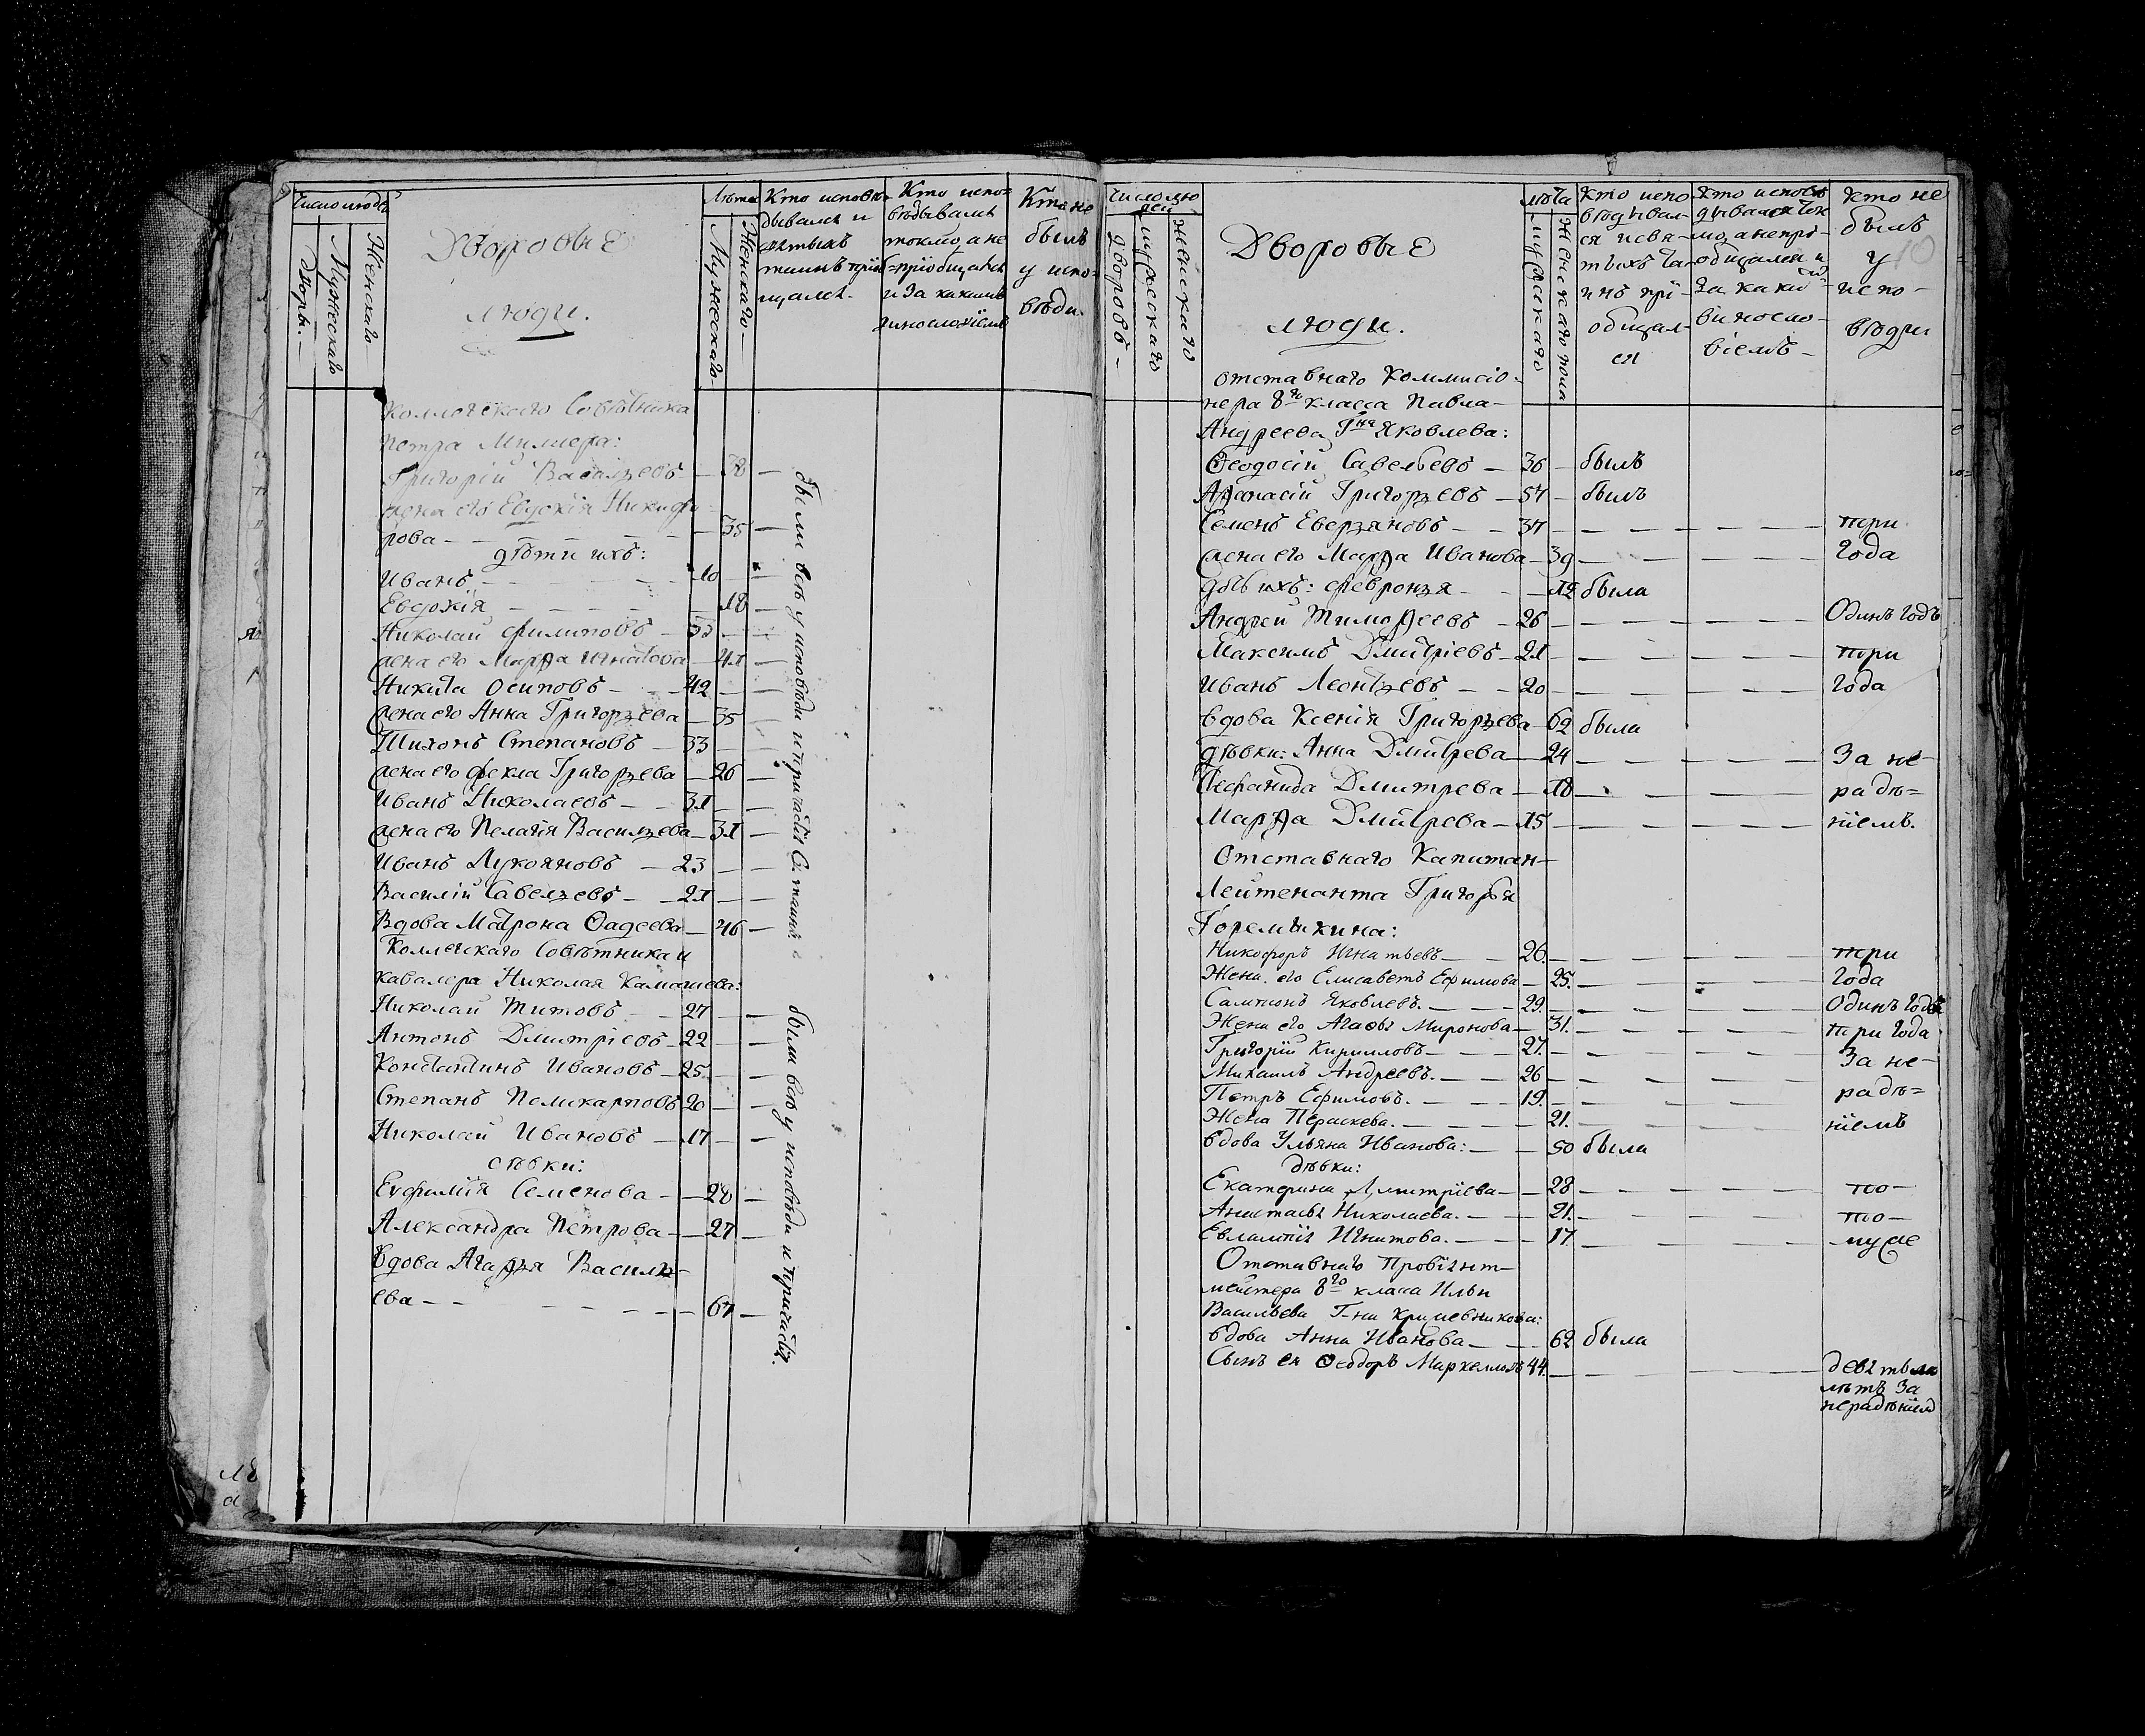 Число людей
Дворы.
Мужескаго
Женскаго
Дворовые
люди.
Лѣта
Мужескаго
Женскаго
Кто исповѣ-
дывался и
святыхъ
таинъ пріоб-
щался.
Кто испо-
вѣдывался
токмо, а не
пріобщался
и за какимъ
винословіемъ
Кто не
былъ
у испо-
вѣди.
Коллежскаго Совѣтника
Петра Миллера:
Григорій Васильевъ — 38 —
жена его Евдокія Никифо-
рова — — 35 —
дѣти ихъ:
Иванъ — 10 —
Евдокія — — — — 18 —
Николай Филиповъ — 53 —
жена его Марѳа Игнатова — 41 —
Никита Осиповъ — 42 —
жена его Анна Григорьева — 35 —
жена его Фекла Григорьева — 26 —
Иванъ Николаевъ — 31 —
жена его Пелагія Васильева — 31 —
Иванъ Лукояновъ — 23 —
Василій Савельевъ — 21 —
Вдова Матрона Ѳадеева — 46 —
Коллежскаго Совѣтника и
кавалера Николая Камашева:
Николай Титовъ — 27 —
Антонъ Дмитріевъ — 22 —
Константинъ Ивановъ — 25 —
Степанъ Поликарповъ 20 —
Николай Ивановъ — 17 —
дѣвки:
Евфимія Семенова — 28 —
Александра Петрова — 27 —
Вдова Агафья Василь-
ева — — 67 —
были всѣ у исповѣди и причастія С. таинъ
были всѣ у исповѣди и причастія.
Число лю
дей
дворовъ
мужескаго
женскаго
Дворовые
люди.
лѣта
мужескаго
женскаго пола
кто испо
вѣдывал-
ся и свя-
тыхъ та-
инъ прі-
общал-
ся
кто исповѣ
дывался ток
мо, а непрі-
общался и
за какі
виносло-
віемъ
кто не
былъ
у
испо-
вѣди
10
отставнаго Коммисіо-
нера 8го класса Павла
Андреева Гна Яковлева:
Ѳеодосій Савельевъ — 36 — былъ
Афанасій Григорьевъ — 57 — былъ
Семенъ Еверзяновъ — 37 — — — — — три
жена его Марѳа Иванова — 39 — — — — — года
дѣв ихъ: Февронья — — 12 была
Андрей Тимоѳеевъ — 26 — — — — — Одинъ годъ
Максимъ Дмитріевъ — 21 — — — — — три
Иванъ Леонтьевъ — 20 — — — — — года
вдова Ксенія Григорьева — 62 была
дѣвки: Анна Дмитрева — 24 — — — — — За не-
Дмитрева — 18 — — — — — радѣ=
Марѳа Дмитрева — 15 — — — — — ніемъ.
Отставнаго Капитан-
Лейтенанта Григорья
Горемыкина:
Никифоръ Игнатьевъ — 26. — — — — — три
Жена его Елисаветъ Ефимова — 25. — — — — — года
Самсонъ Яковлевъ. — 29. — — — — — Одинъ годъ
Жена его Агаѳья Миронова — 31. — — — — — три года
Григорій Кирилловъ — 27. — — — — — За не-
Михаилъ Андреевъ. — 26 — — — — — радѣ=
Петръ Ефимовъ. — 19. — — — — — ніемъ
Жена Пераскева. — 21. — — — — —
вдова Ульяна Иванова: — 50 была
дѣвки:
Екатерина Дмитріева — 28 — — — — — то-
Анастасья Николаева. — 21. — — — — — то-
Евлампія Игнатова. — 17. — — — — — муже
Отставнаго Провіант-
мейстера 8го класа Ильи
Васильева Г-на
вдова Анна Иванова — 62 была
Сынъ ея Ѳеодоръ Маркелловъ 44. — — — — — девять
лѣтъ За
нерадѣніемъ